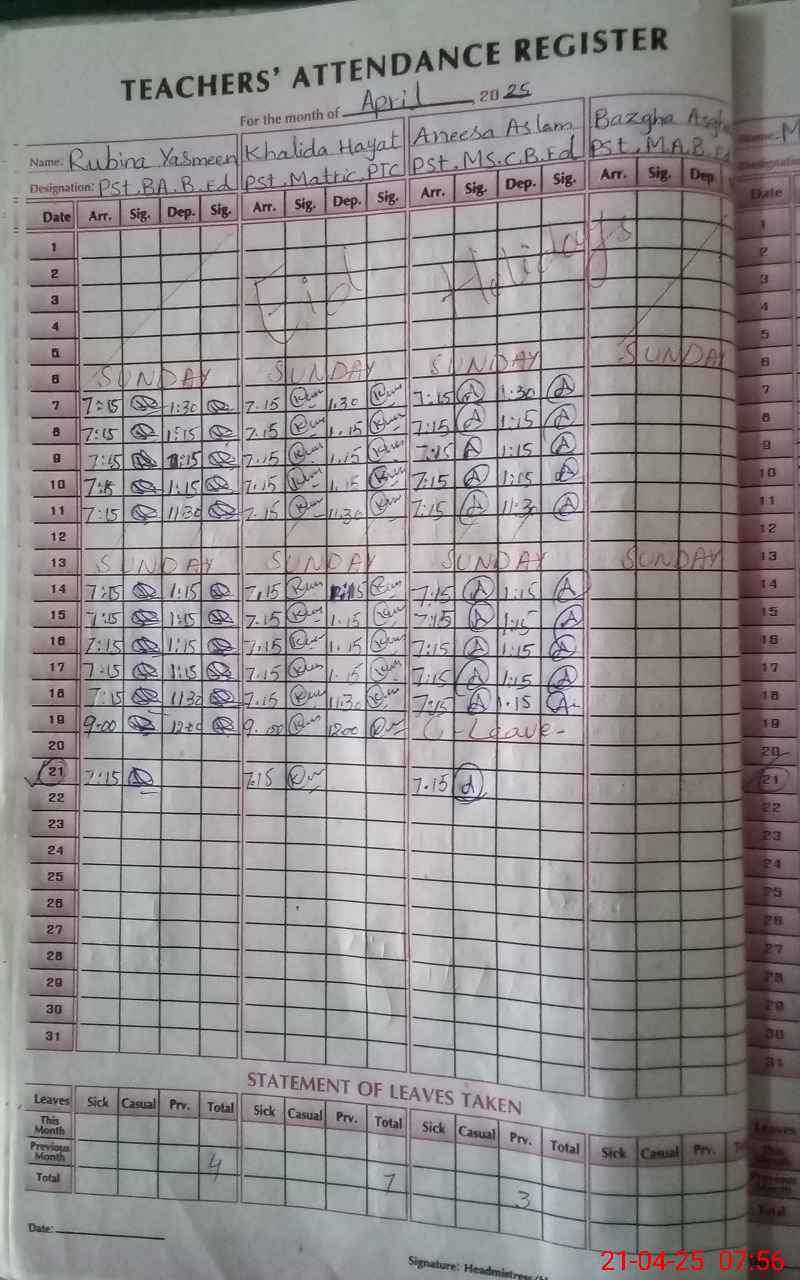 TEACHERS' ATTENDANCE REGISTER
For the month of April, 2025
Name: Rubina Yasmeen Khalida Hayat Aneesa Aslam Bazgha
Designation: Pst, BA. B. Ed Pst, Matric, PTC Pst, MS.C, B. Ed Pst, M.A, B. Ed
Date Arr. Sig. Dep. Sig. Arr. Sig. Dep. Sig. Arr. Sig. Dep. Sig. Arr. Sig. Dep Date
1 1
2 Eid Holidays 2
3 3
4 4
5 5
6 SUNDAY SUNDAY SUNDAY SUNDAY 6
7 7:15 1:30 7.15 1.30 7:15 A 1:30 A 7
8 7:15 1:15 7.15 1.15 7:15 A 1:15 A 8
9 7:15 1:15 7.15 1.15 7:15 A 1:15 A 9
10 7:15 1:15 7.15 1.15 7:15 A 1:15 A 10
11 7:15 11:30 7.15 11.30 7:15 A 11:30 A 11
12 12
13 SUNDAY SUNDAY SUNDAY SUNDAY 13
14 7:15 1:15 7.15 1:15 7:15 A 1:15 A 14
15 7:15 1:15 7.15 1.15 7:15 A 1:15 A 15
16 7:15 1:15 7.15 1.15 7:15 A 1:15 A 16
17 7:15 1:15 7.15 1.15 7:15 A 1:15 A 17
18 7:15 1130 7.15 11.30 7:15 A 1.15 A 18
19 9:00 12:00 9.00 1200 C-Leave- 19
20 20
21 7:15 7.15 7.15 A 21
22 22
23 23
24 24
25 25
26 26
27 27
28 28
29 29
30 30
31 31
STATEMENT OF LEAVES TAKEN
Leaves Sick Casual Prv. Total Sick Casual Prv. Total Sick Casual Prv. Total Sick Casual Prv. Leaves
This Month
Previous Month 4
Total 7 3 Total
Date:
Signature:
21-04-25 07:56